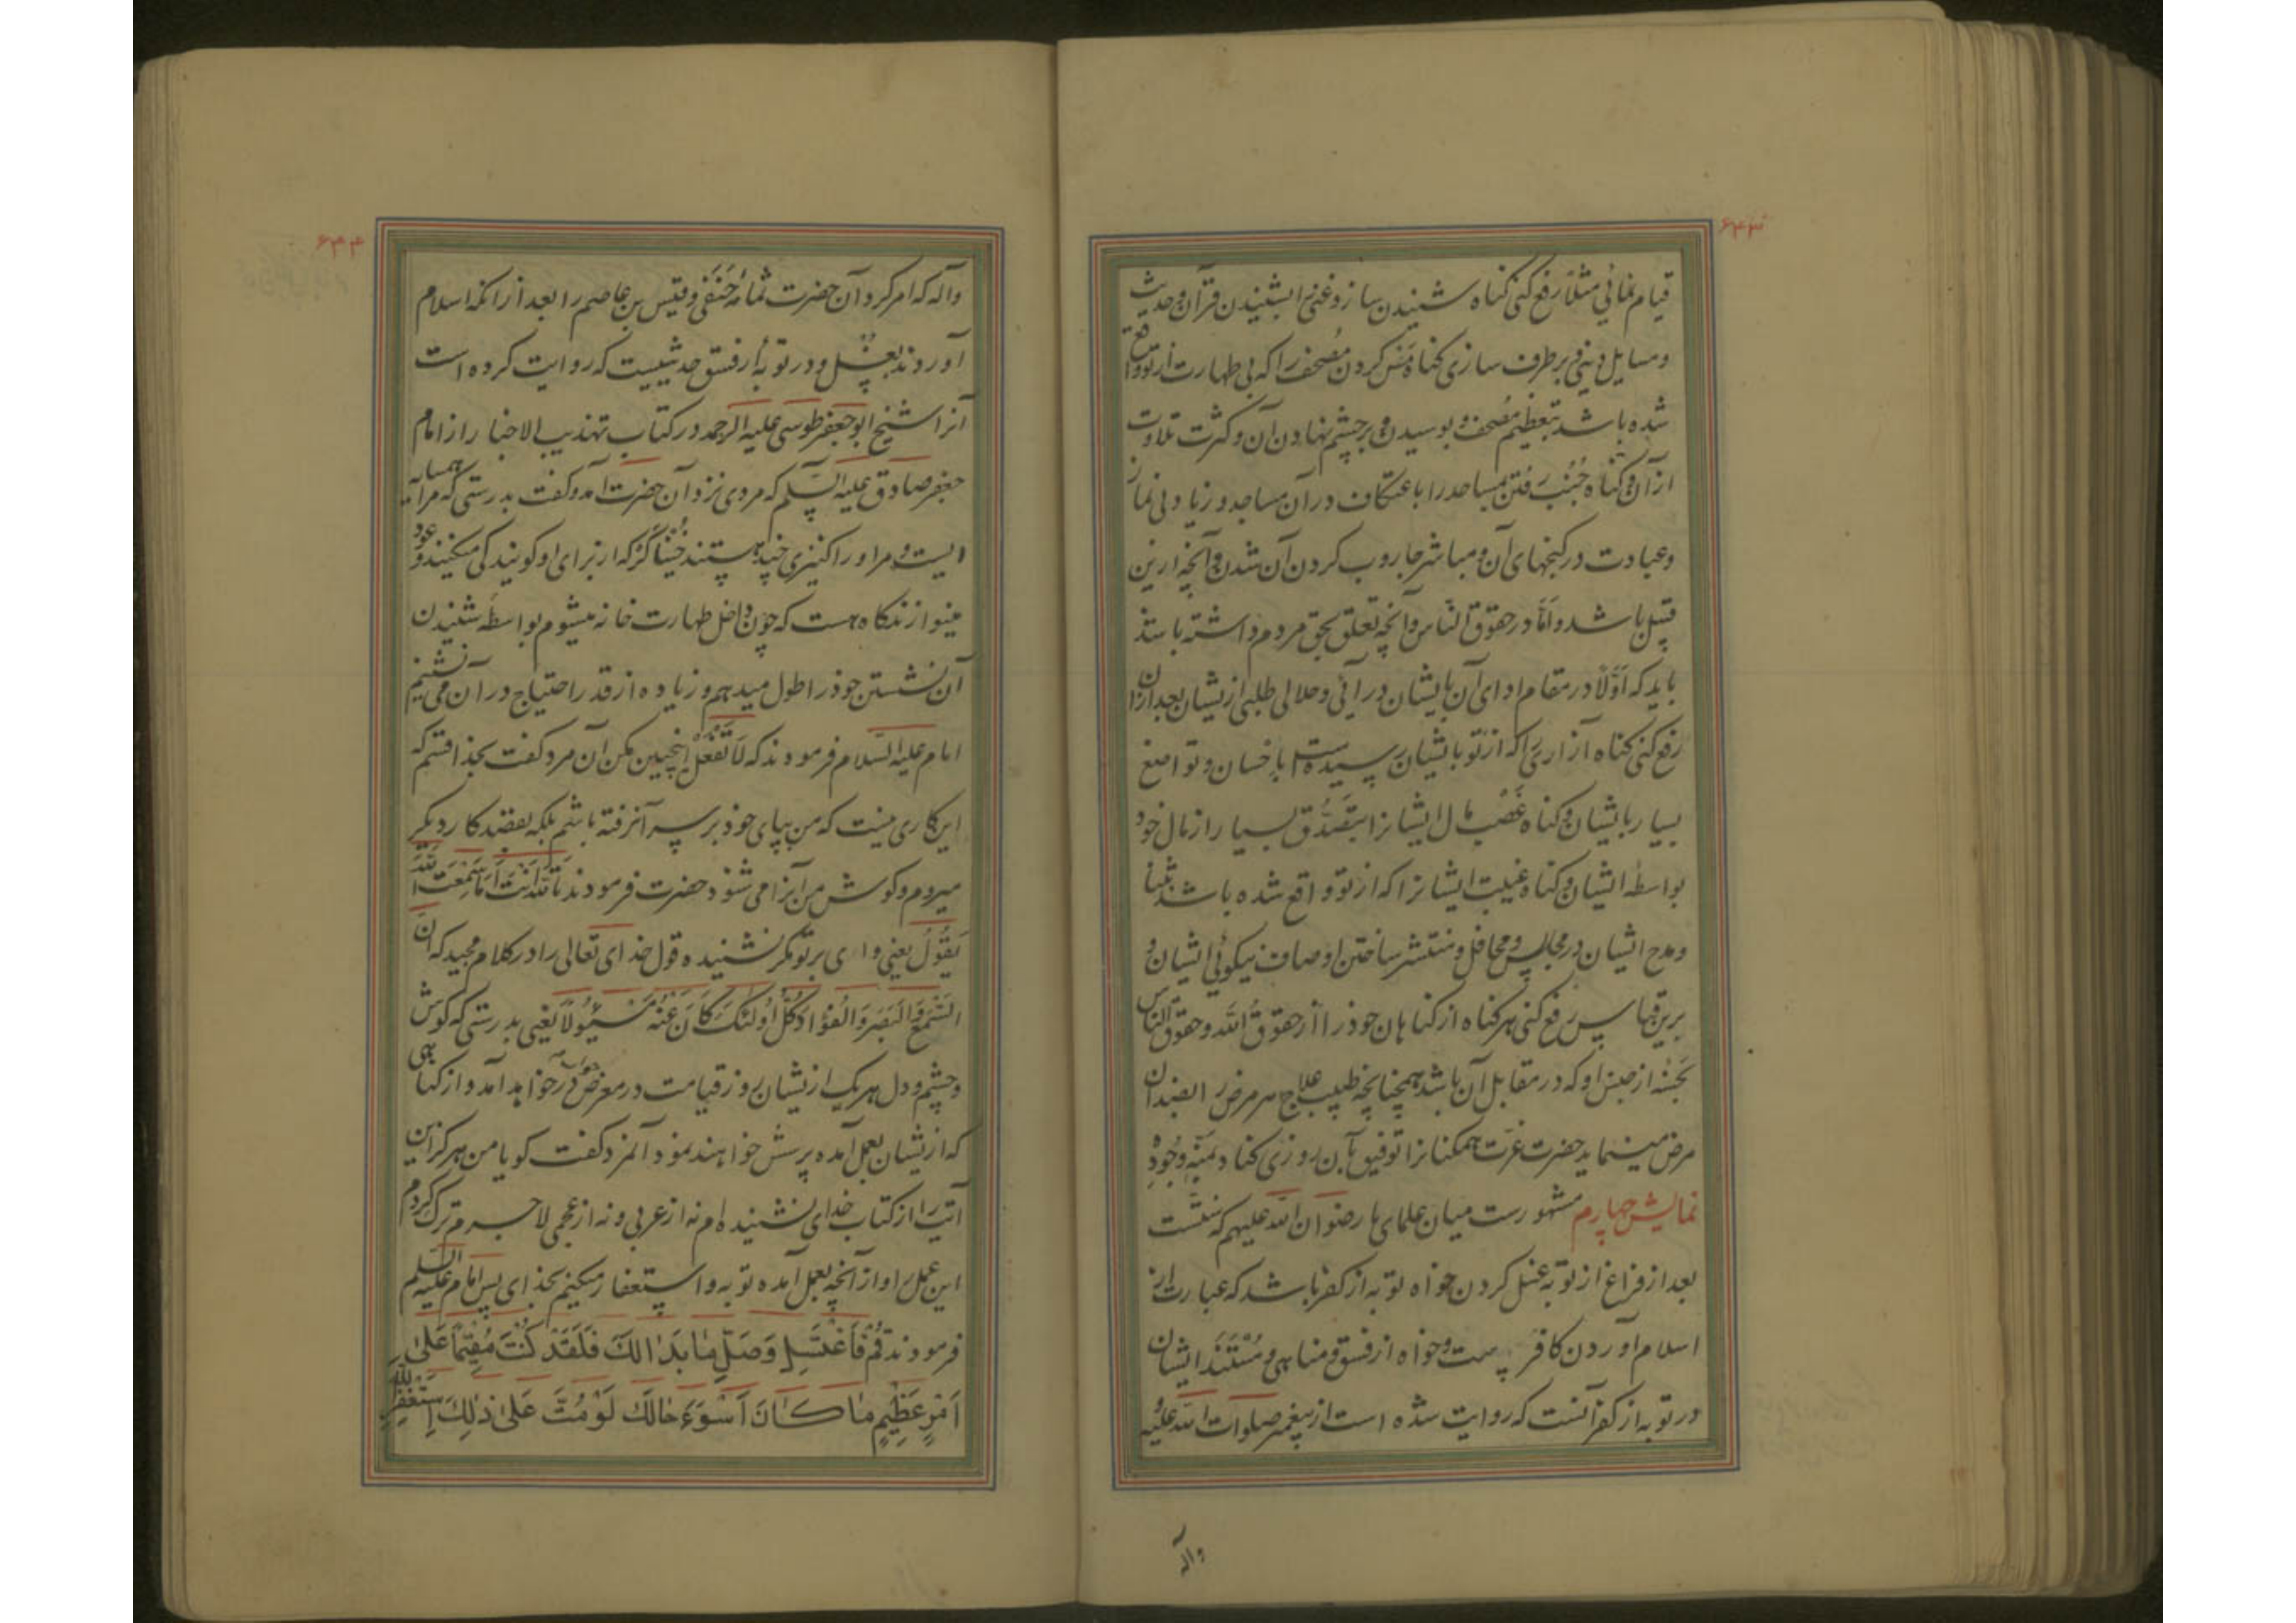 ۶۴۳
قیام نمائی مثلا رفع کنی کناه شنیدن ساز و غنی را بشنیدن قرآن و حدیث
و مسایل دینی و برطرف سازی کناه مس کردن مصحف را که بی طهارت از تو واقع
شده باشد بتعظیم مصحف و بوسیدن و برچشم نهادن آن و کثرت تلاوت
از آن و کناه جنب رفتن بمساجد را باعتکاف در آن مساجد و زیادتی نماز
و عبادت در کنجهای آن و مباشر جاروب کردن آن شدن و آنچه ازین
قبیل باشد و اما در حقوق الناس و آنچه تعلق بحق مردم داشته باشد
باید که اولا در مقام ادای آن بایشان در آئی و حلالی طلبی ازیشان بعد از آن
رفع کنی کناه آزاری را که از تو بایشان رسیده است باحسان و تواضع
بسیار بایشان و کناه غصب مال ایشانرا بتصدق بسیار از مال خود
بواسطه ایشان و کناه غیبت ایشانرا که از تو واقع شده باشد بثنا
و مدح ایشان در مجالس و محافل و منتشر ساختن اوصاف نیکوئی ایشان و
برین قیاس رفع کنی هر کناه از کناهان خود را از حقوق الله و حقوق الناس
بحسنه از جنس او که در مقابل آن باشد همچنانچه طبیب علاج هر مرض را بضد آن
مرض مینماید حضرت عزت همکنانرا توفیق آن روزی کناد بمنه وجوده
نمایش چهارم مشهور است میان علمای ما رضوان الله علیهم که سنتست
بعد از فراغ از توبه غسل کردن خواه توبه از کفر باشد که عبارت از
اسلام آوردن کافر است و خواه از فسق و مناهی و مستند ایشان
در توبه از کفر آنست که روایت شده است از پیغمبر صلوات الله علیه
وآله
۶۴۴
وآله که امر کرد آن حضرت ثمامه حنفی و قیس بن عاصم را بعد از انکه اسلام
آوردند بغسل و در توبه از فسق حدیثیست که روایت کرده است
آنرا شیخ ابوجعفر طوسی علیه الرحمه در کتاب تهذیب الاخبار از امام
جعفر صادق علیه السلم که مردی نزد آن حضرت آمد و کفت بدرستی که مرا همسایه
ایست و مر او را کنیزی چند هستند خنیاکر که از برای او کویندکی میکنند و عود
مینوازند کاه هست که چون داخل طهارت خانه میشوم بواسطه شنیدن
آن نشستن خود را طول میدهم و زیاده از قدر احتیاج در آن می نشینم
امام علیه السلام فرمودند که لا تفعل اینچنین مکن آن مرد کفت بخدا قسم که
این کاری نیست که من بپای خود بر سر آن رفته باشم بلکه بقصد کار دیکر
میروم و کوش من آنرا می شنود حضرت فرمودند تالله انت اما سمعت الله
یقول یعنی وای بر تو مکر نشنیده قول خدای تعالی را در کلام مجید که ان
السمع والبصر والفؤاد کل اولئک کان عنه مسئولا یعنی بدرستی که کوش
و چشم و دل هر یک ازیشان روز قیامت در معرض خواهد آمد و از کناهی
که ازیشان بعمل آمده پرسش خواهند نمود آنمرد کفت کویا من هرکز این
آیت را از کتاب خدای نشنیده ام نه از عربی و نه از عجمی لاجرم ترک کردم
این عمل را و از آنچه بعمل آمده توبه و استغفار میکنم بخدای پس امام علیه السلم
فرمودند قُم فَاغْتَسِل وَصَلِّ مٰا بَدٰا لَكَ فَلَقَدْ كُنْتَ مُقِيمًا عَلىٰ
اَمْرٍ عَظِيمٍ مٰا كٰانَ اَسْوَءَ حٰالَكَ لَوْ مُتَّ عَلىٰ ذٰلِكَ اِسْتَغْفِرِ اللّٰهَ